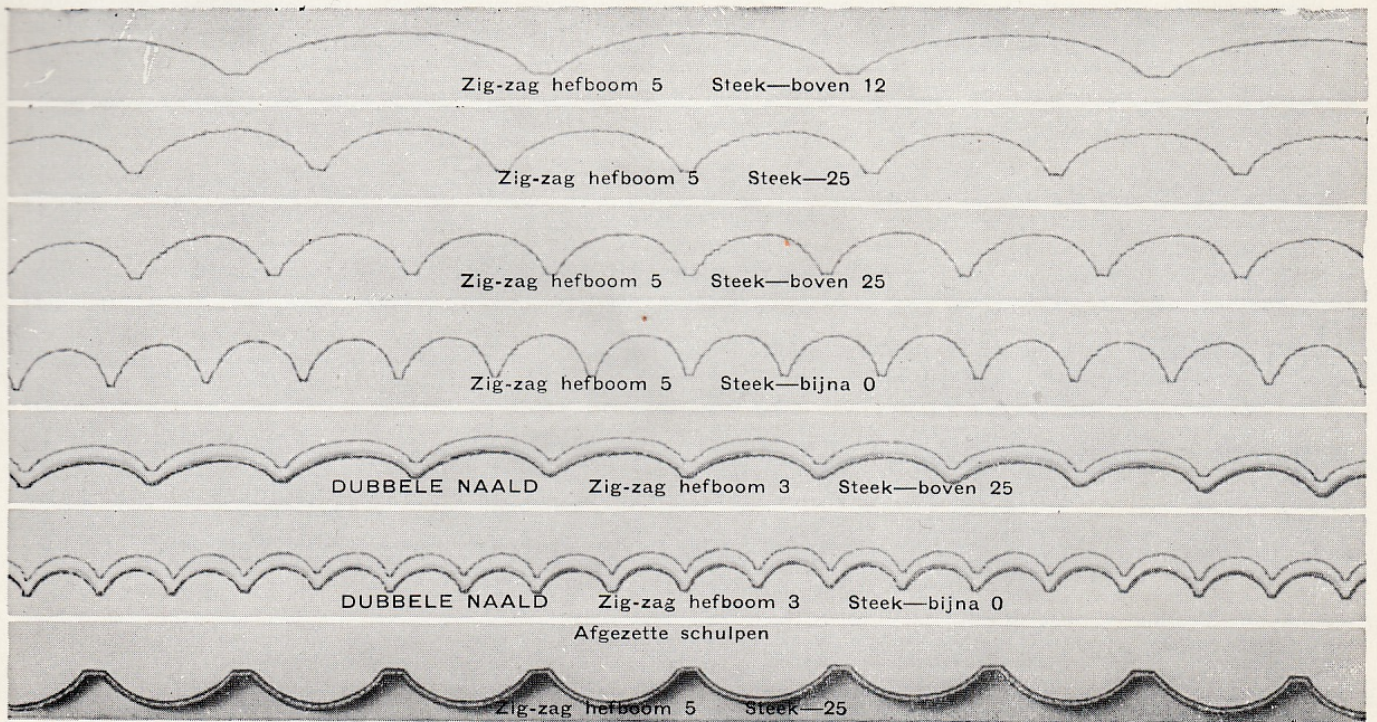 Zig-zag hefboom 5 Steek—boven 12
Zig-zag hefboom 5 Steek—25
Zig-zag hefboom 5 Steek—boven 25
Zig-zag hefboom 5 Steek—bijna 0
DUBBELE NAALD Zig-zag hefboom 3 Steek—boven 25
DUBBELE NAALD Zig-zag hefboom 3 Steek—bijna 0
Afgezette schulpen
Zig-zag hefboom 5 Steek—25